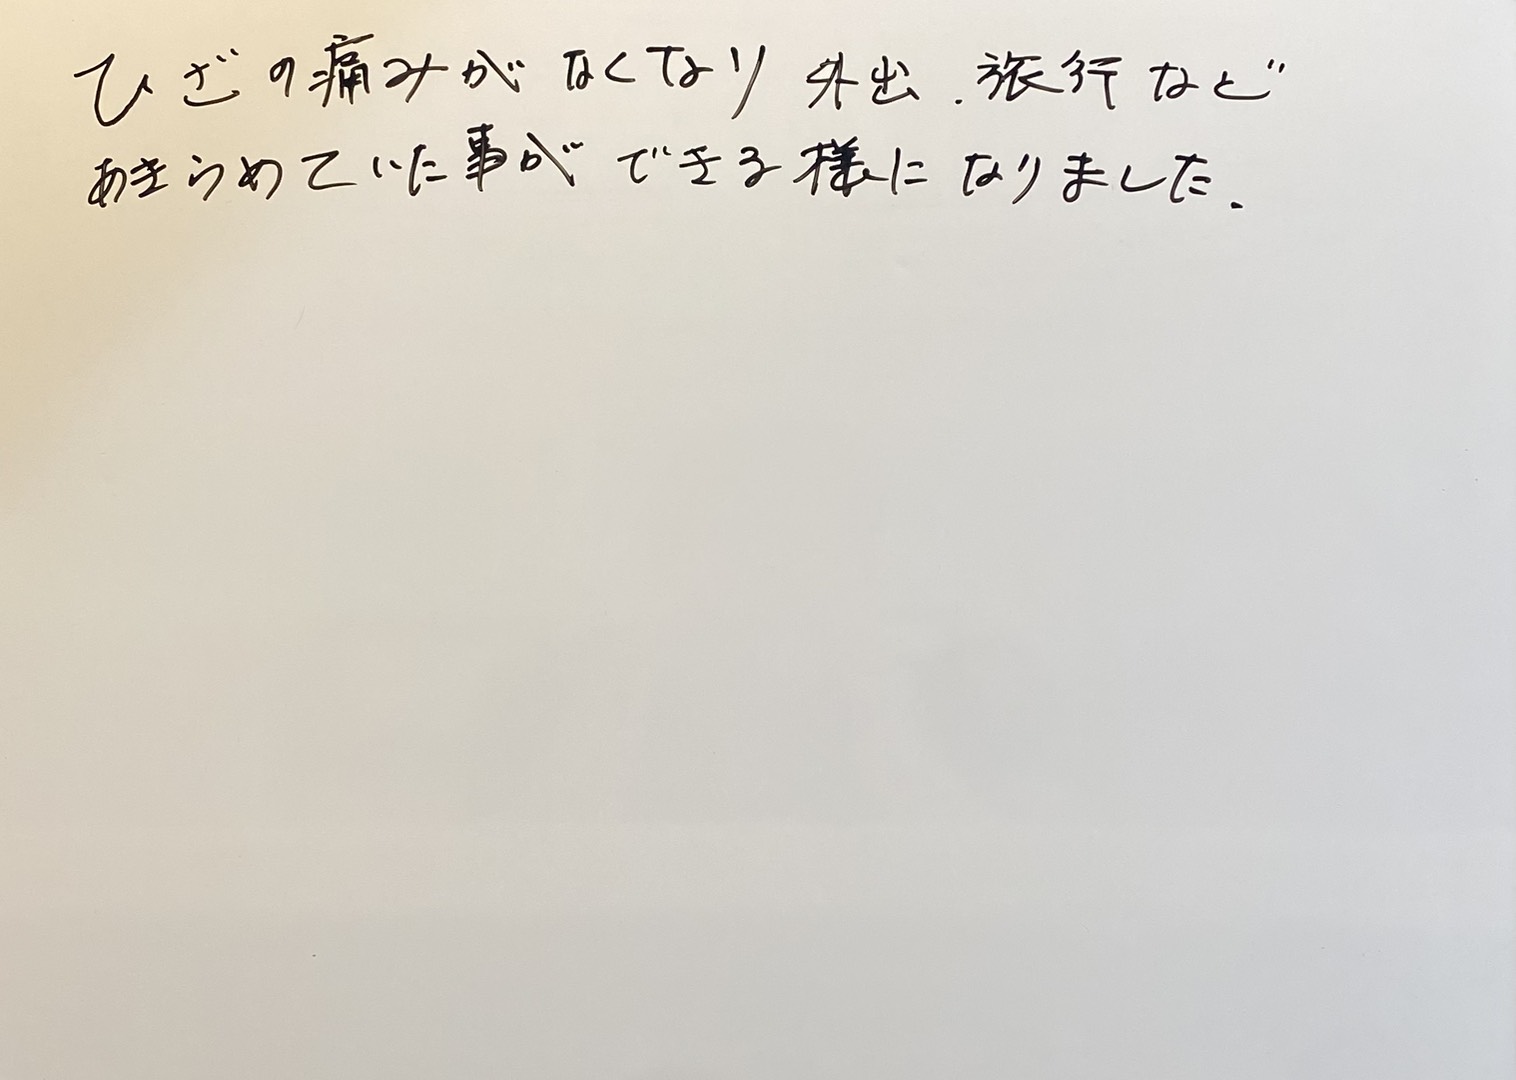 ひざの痛みがなくなり外出、旅行など
あきらめていた事ができる様になりました。